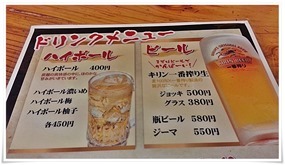 ドリンクメニュー
ハイボール
ハイボール 400円
ハイボール濃いめ
ハイボール梅
ハイボール柚子
各450円
ビール
まずはビールで
かんぱーい!
キリン一番搾り生
ジョッキ 500円
グラス 380円
瓶ビール 580円
ジーマ 550円
KIRIN
一番搾り